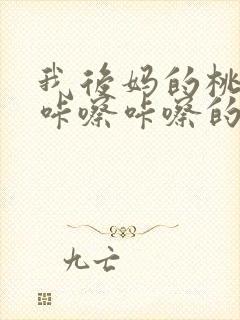 我后妈的桃
咔嚓咔嚓的
九亡